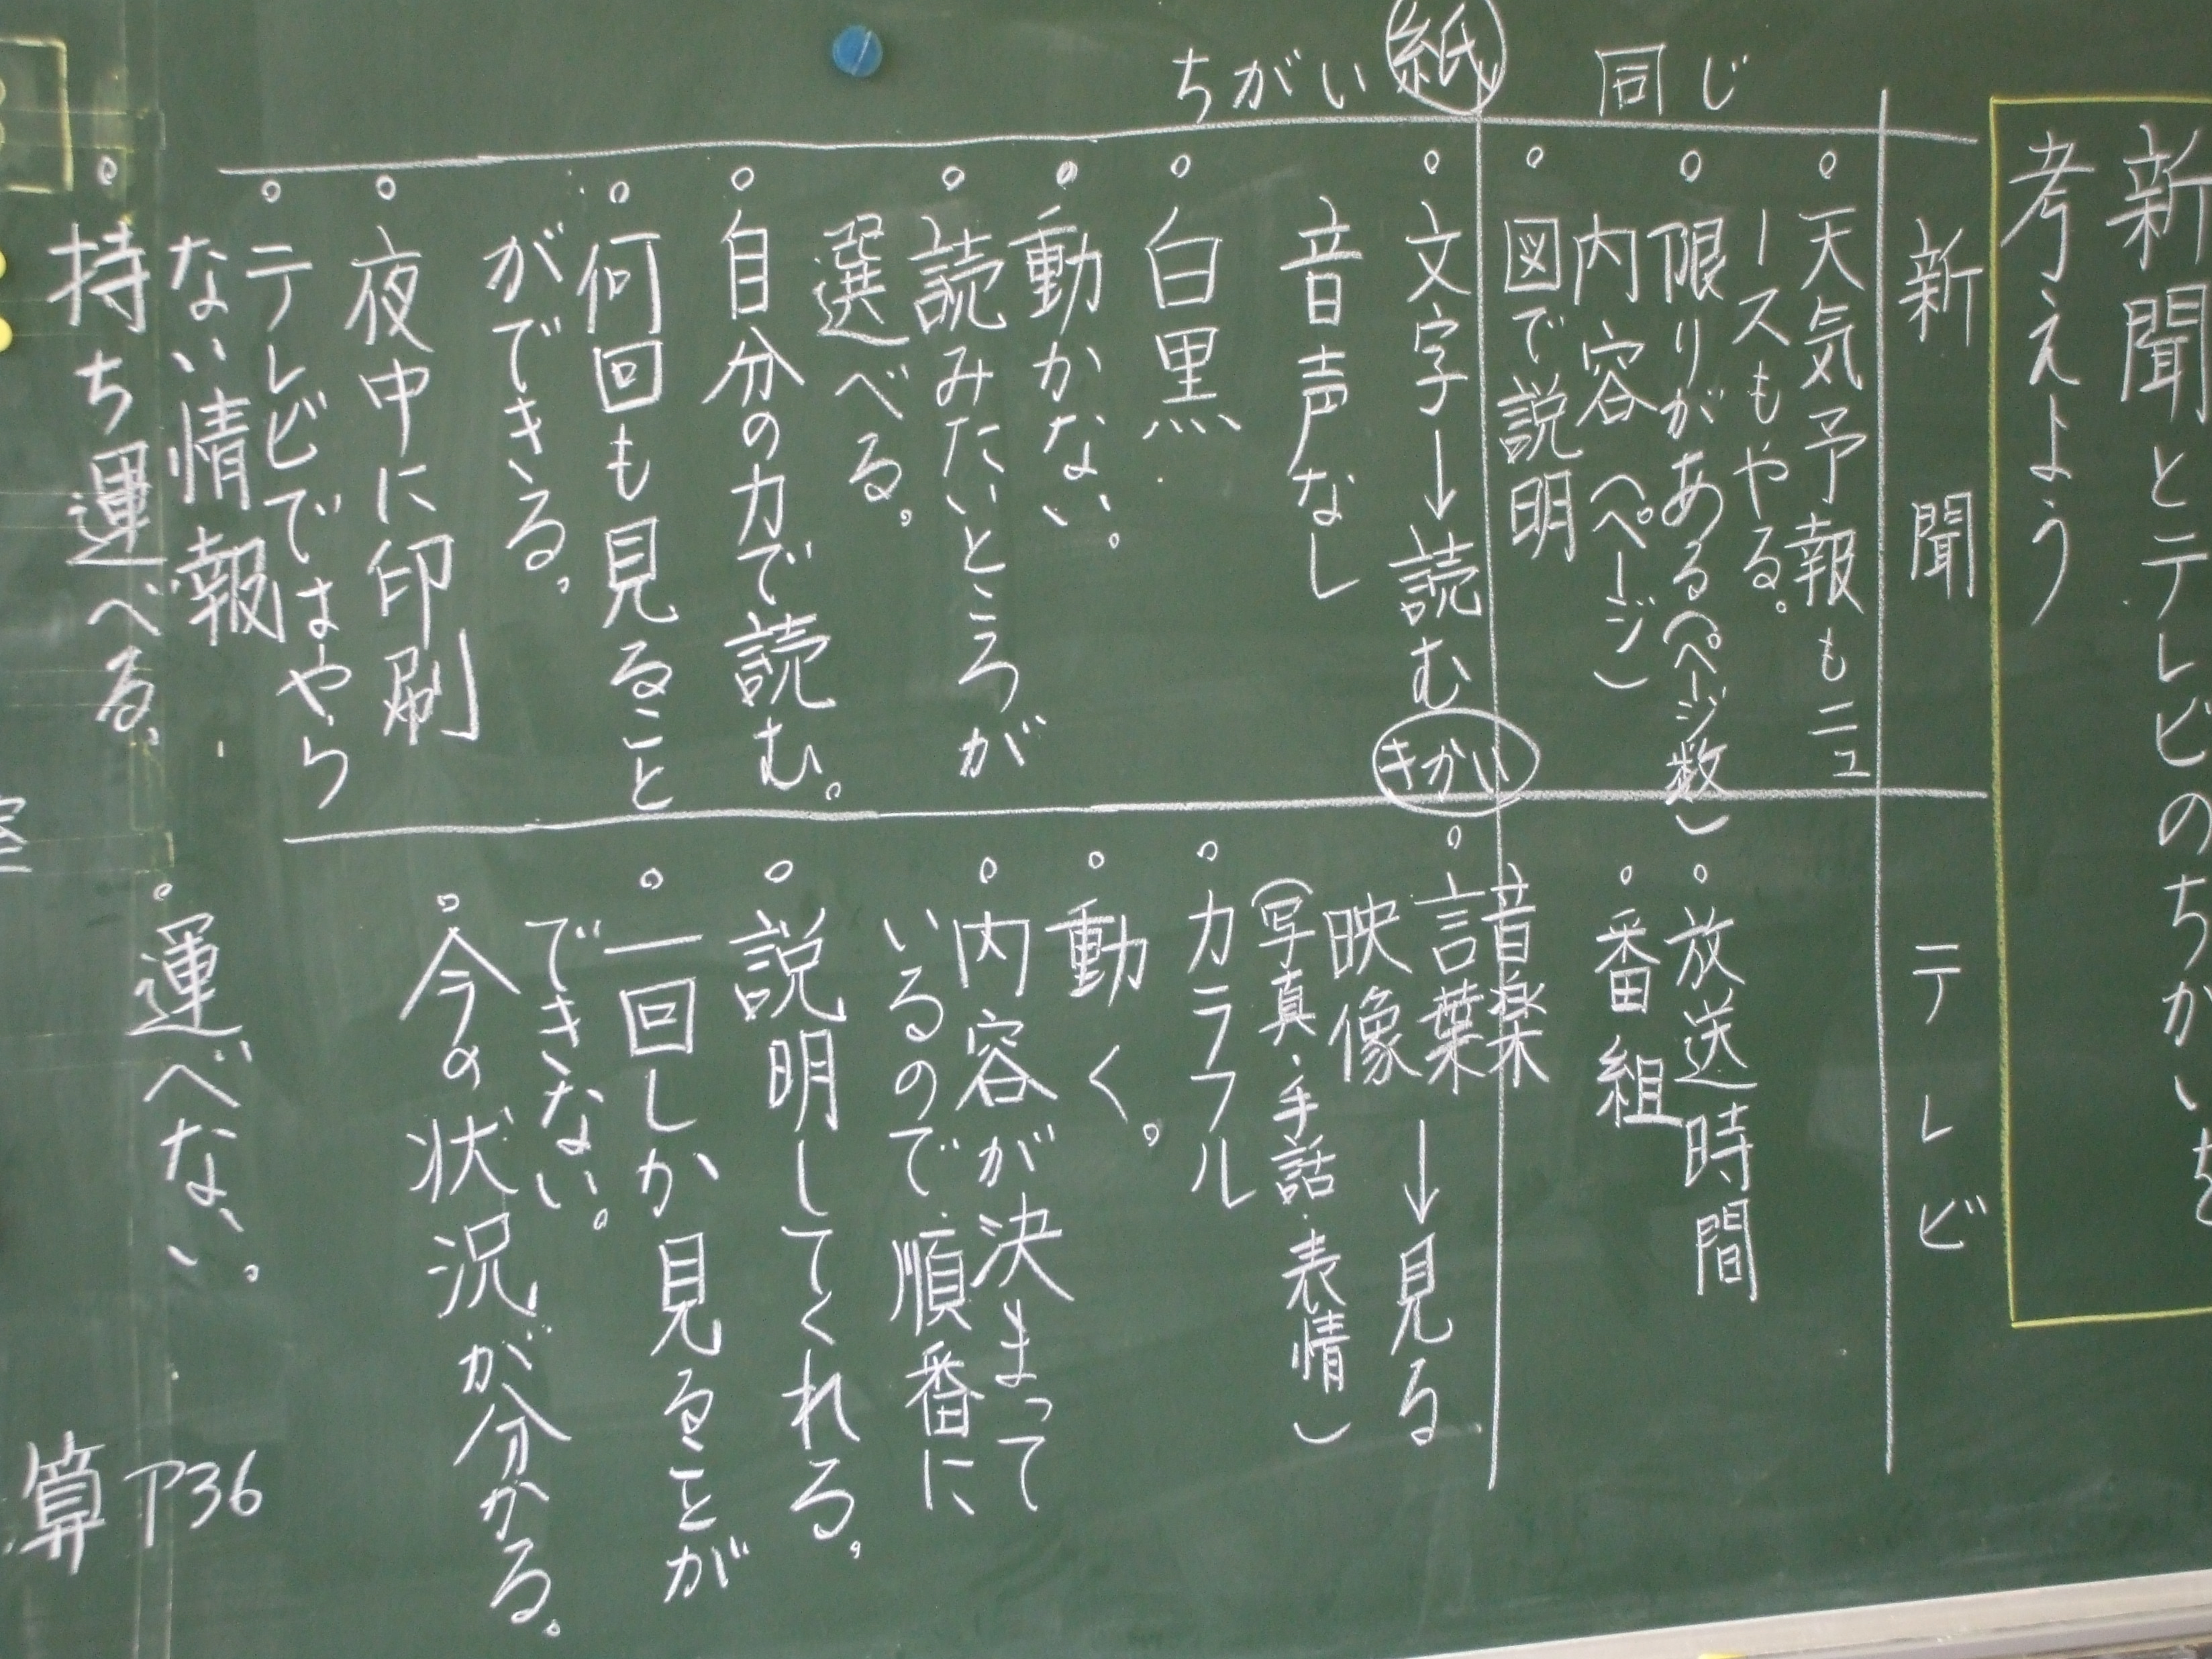 新聞とテレビのちがいを
考えよう
新聞
テレビ
同じ
天気予報もニュ
ースもやる。
限りがあるページ数)
内容(ページ)
図で説明
放送時間
番組
ちがい
紙
文字→読む
音声なし
白黒
動かない。
読みたいところが
選べる。
自分の力で読む。
何回も見ること
ができる。
夜中に印刷
テレビではやら
ない情報
持ち運べる。
きかい
音楽
言葉
映像
→見る
(写真・手話・表情)
カラフル
動く。
内容が決まって
いるので順番に
説明してくれる。
一回しか見ることが
できない。
今の状況が分かる。
運べない。
算 P36